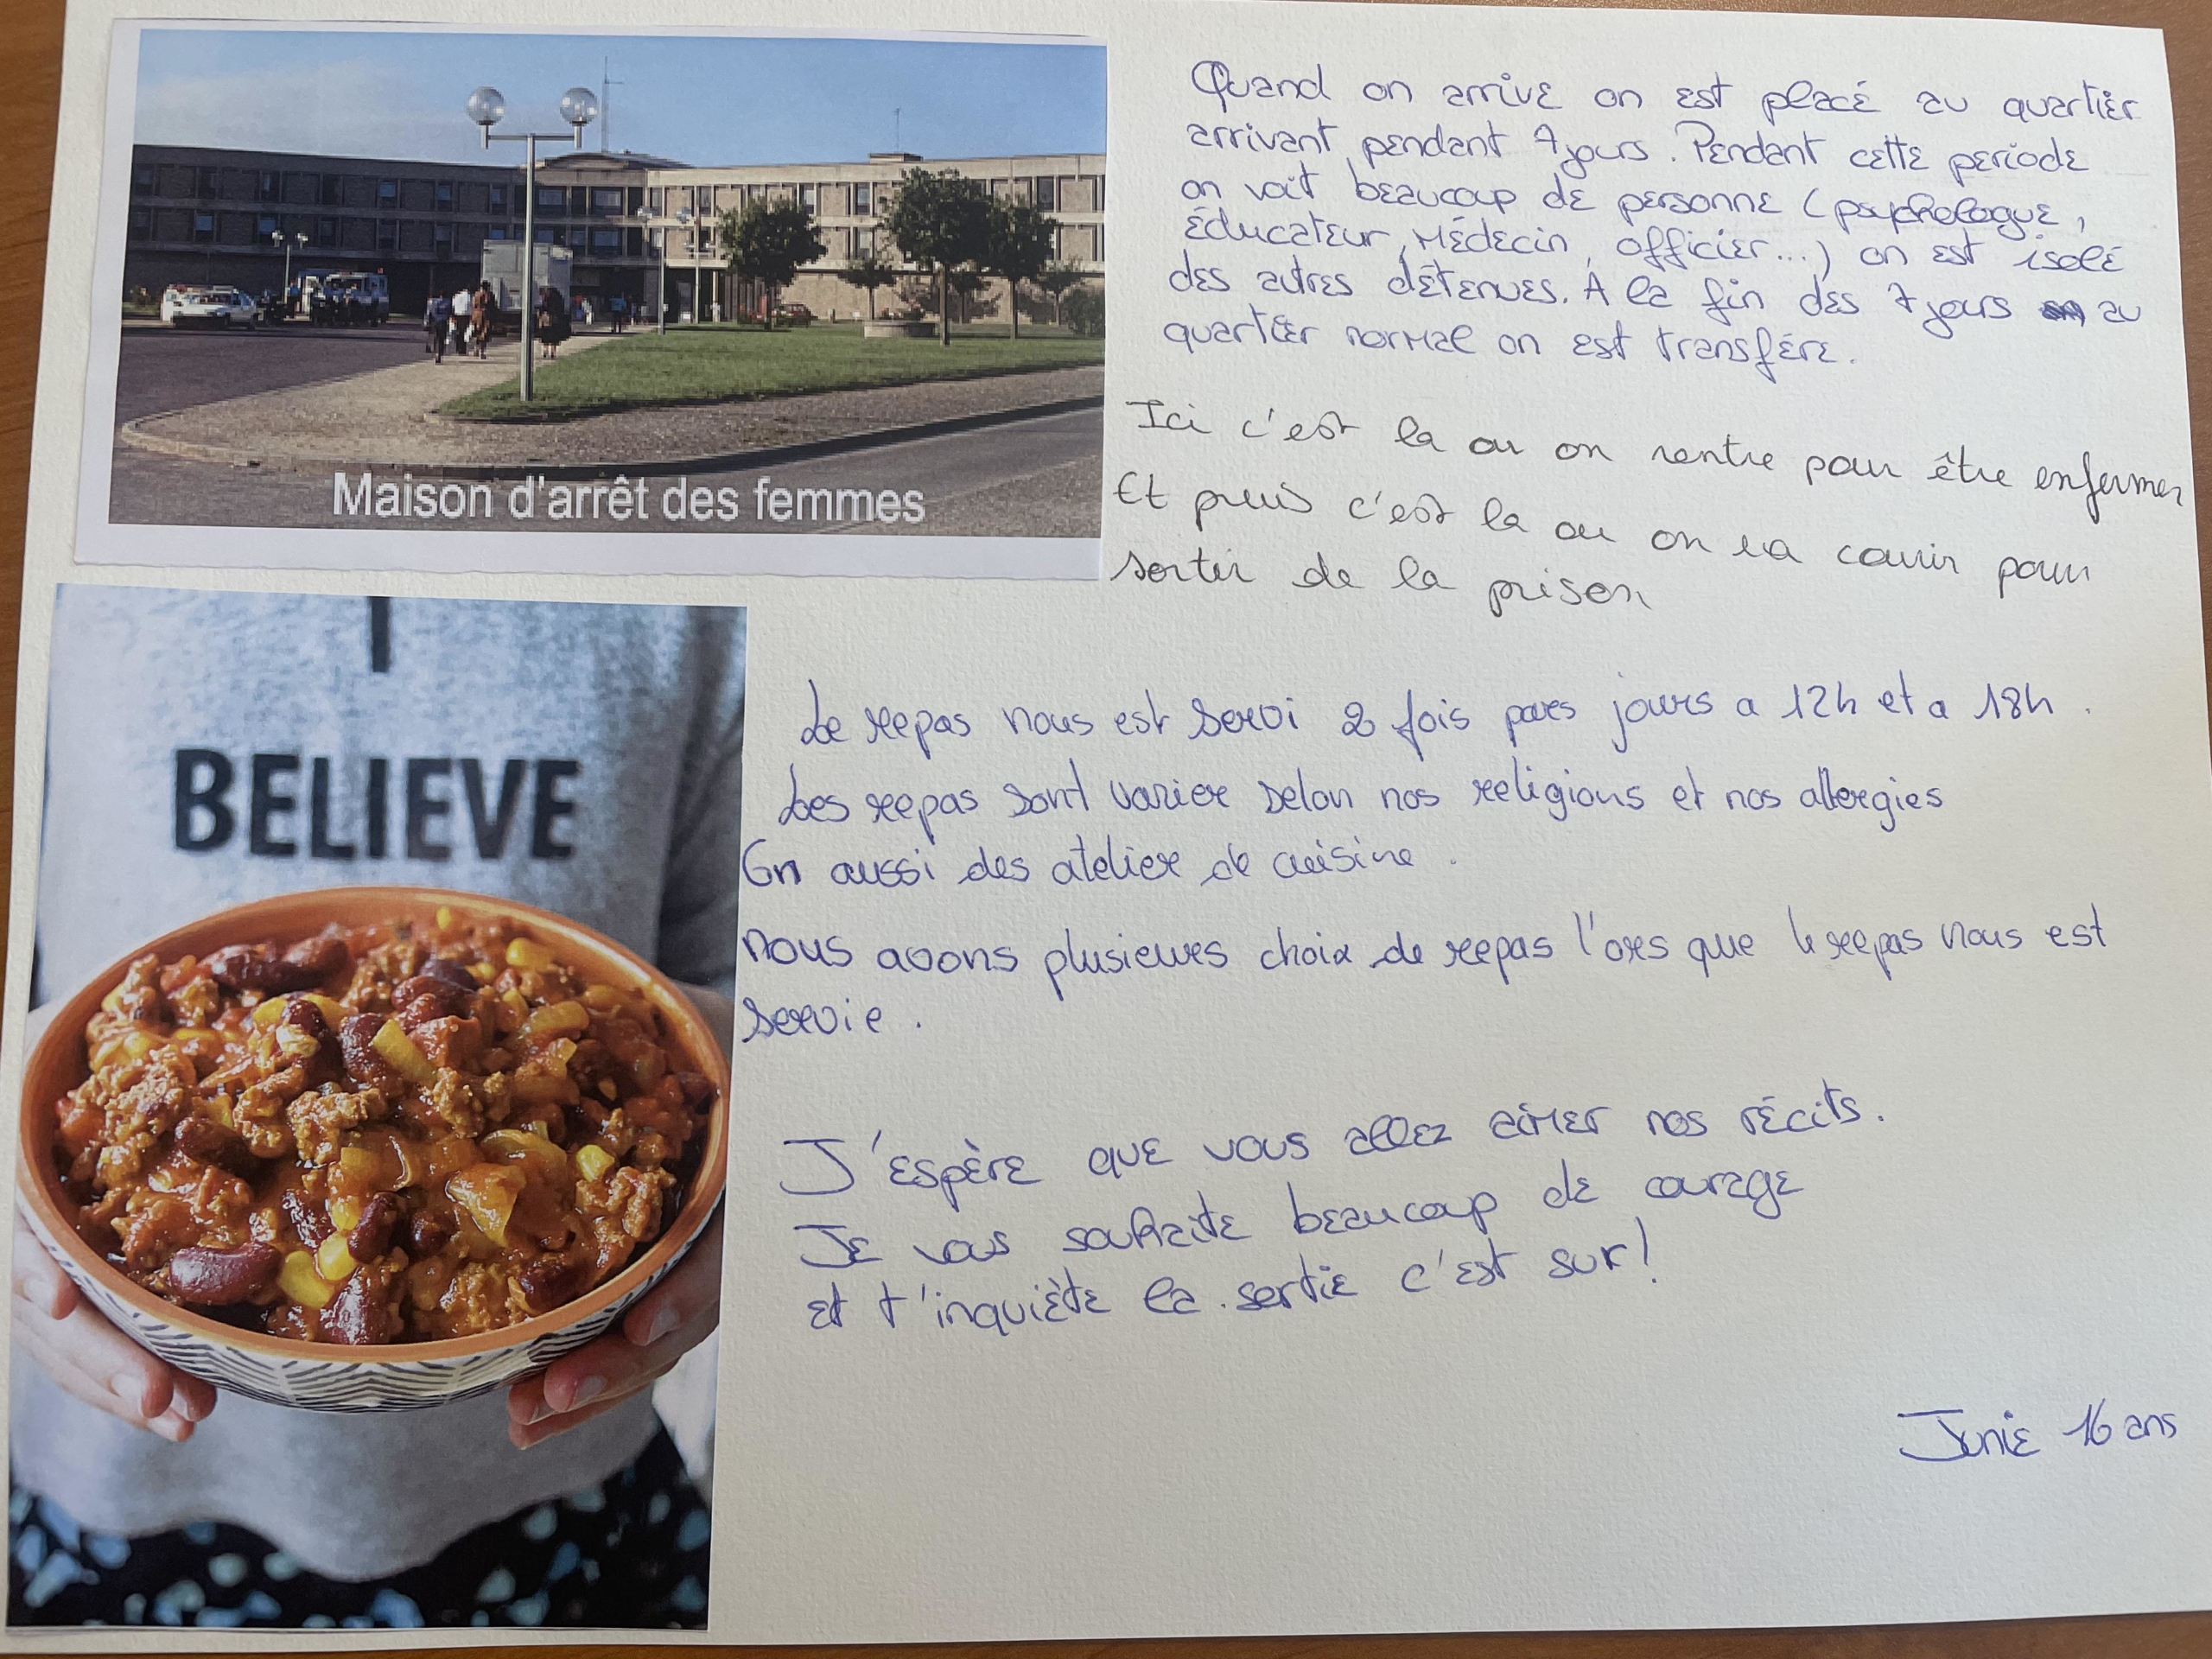 Maison d'arrêt des femmes
Quand on arrive on est placé au quartier
arrivant pendant 7 jours. Pendant cette periode
on voit beaucoup de personne (psychologue,
éducateur, Médecin, officier...) on est isolé
des autres détenues. À la fin des 7 jours au
quartier normal on est transfére.
Ici c'est la ou on rentre pour être enfermer
Et puis c'est la ou on va courir pour
sortir de la prison
BELIEVE
Le repas nous est servi 2 fois pars jours a 12h et a 18h.
Les repas sont varier selon nos religions et nos allergies
On aussi des atelier de cuisine.
nous avons plusieurs choix de repas l'ors que le repas nous est
servie.
J'espère que vous allez aimer nos récits.
Je vous souhaite beaucoup de courage
et t'inquiète la sortie c'est sur!
Junie 16 ans